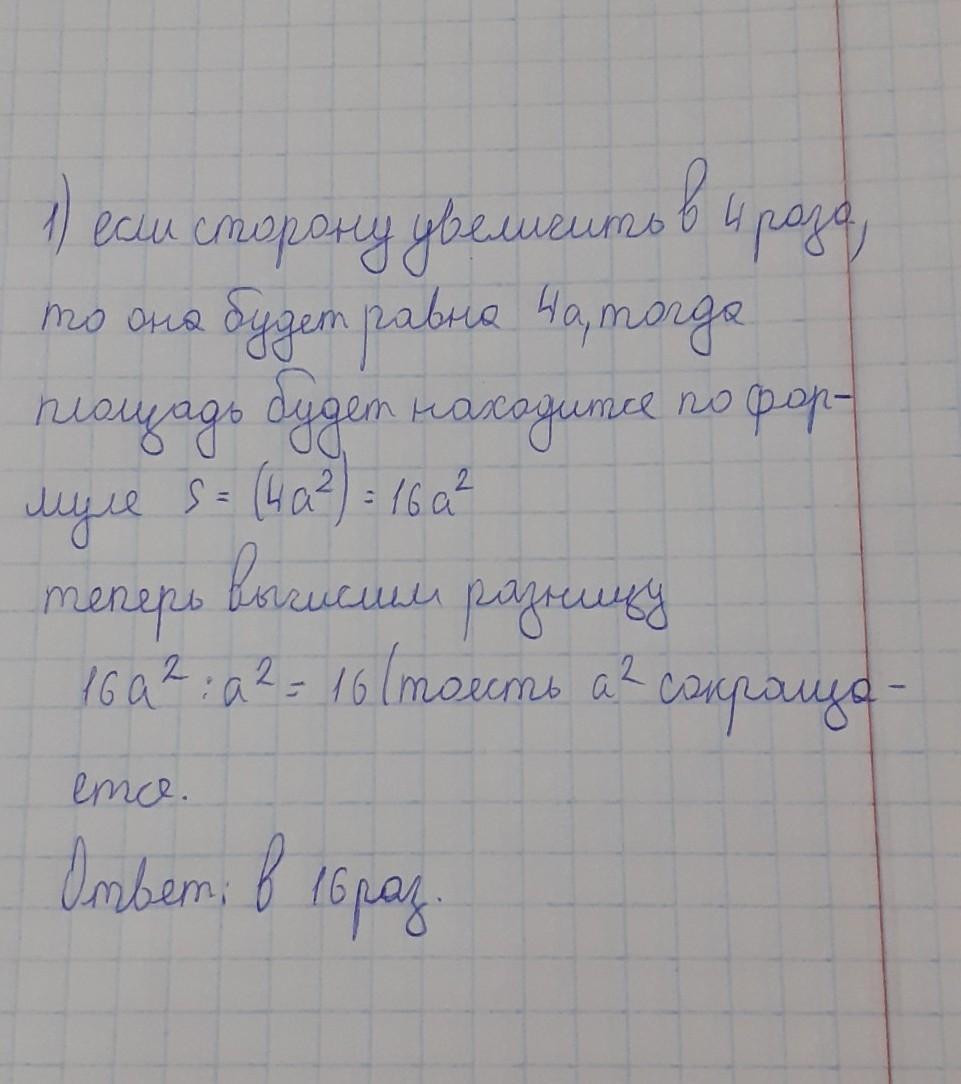 1) если сторону увеличить в 4 раза,
то она будет равна 4а, тогда
площадь будет находится по фор-
муле S = (4a²) = 16a²
теперь вычислим разницу
16a² : a² = 16 (тоесть a² сокраща-
ется.
Ответ: в 16 раз.